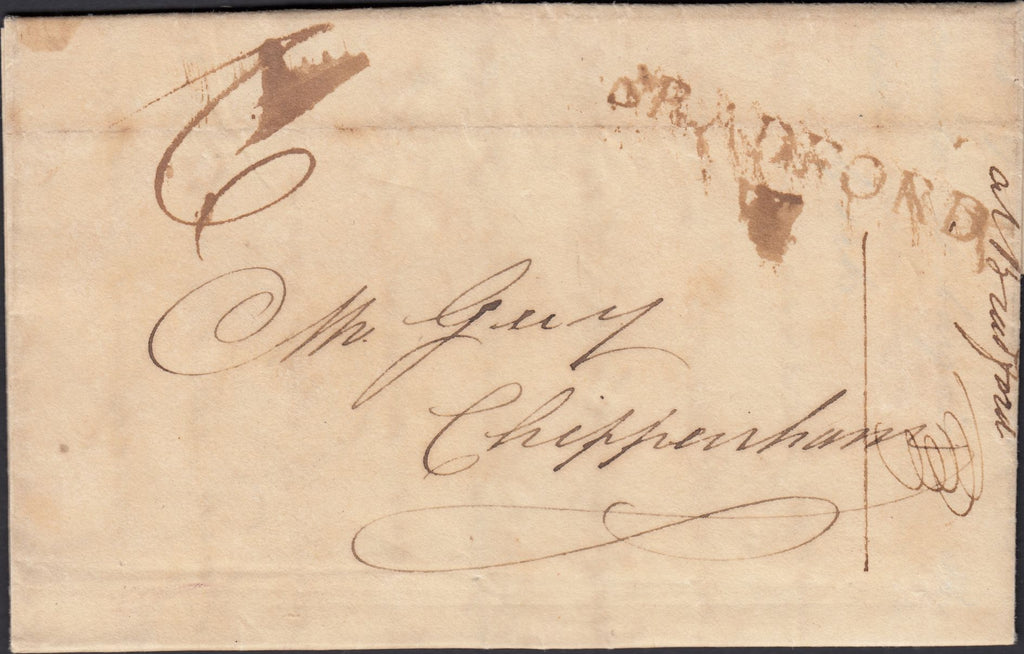 BRADFORD
Mr. Guy
Chippenham
at Bradford